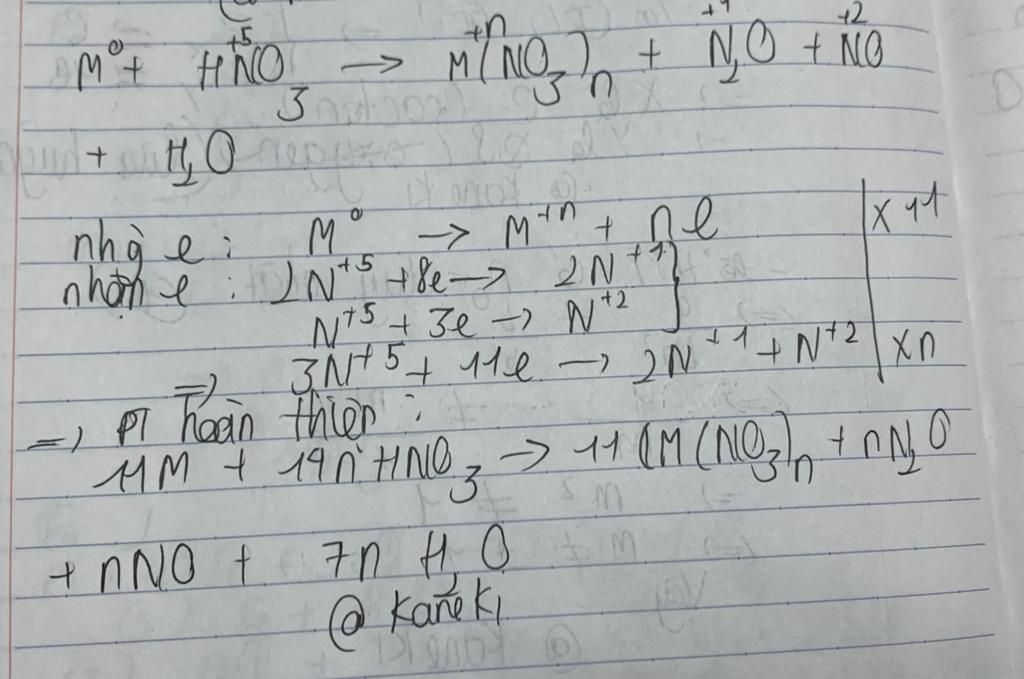 M⁰ + HN⁺⁵O₃ → M⁺ⁿ(NO₃)ₙ + N₂⁺¹O + N⁺²O
+ H₂O
nhg̀ e : M⁰ → M⁺ⁿ + ne | x 11
nhận e : 2N⁺⁵ + 8e → 2N⁺¹ }
N⁺⁵ + 3e → N⁺² }
=> 3N⁺⁵ + 11e → 2N⁺¹ + N⁺² | xn
=> PT hoàn thiện :
11M + 14nHNO₃ → 11(M(NO₃)ₙ + nN₂O
+ nNO + 7n H₂O
@ Kaneki